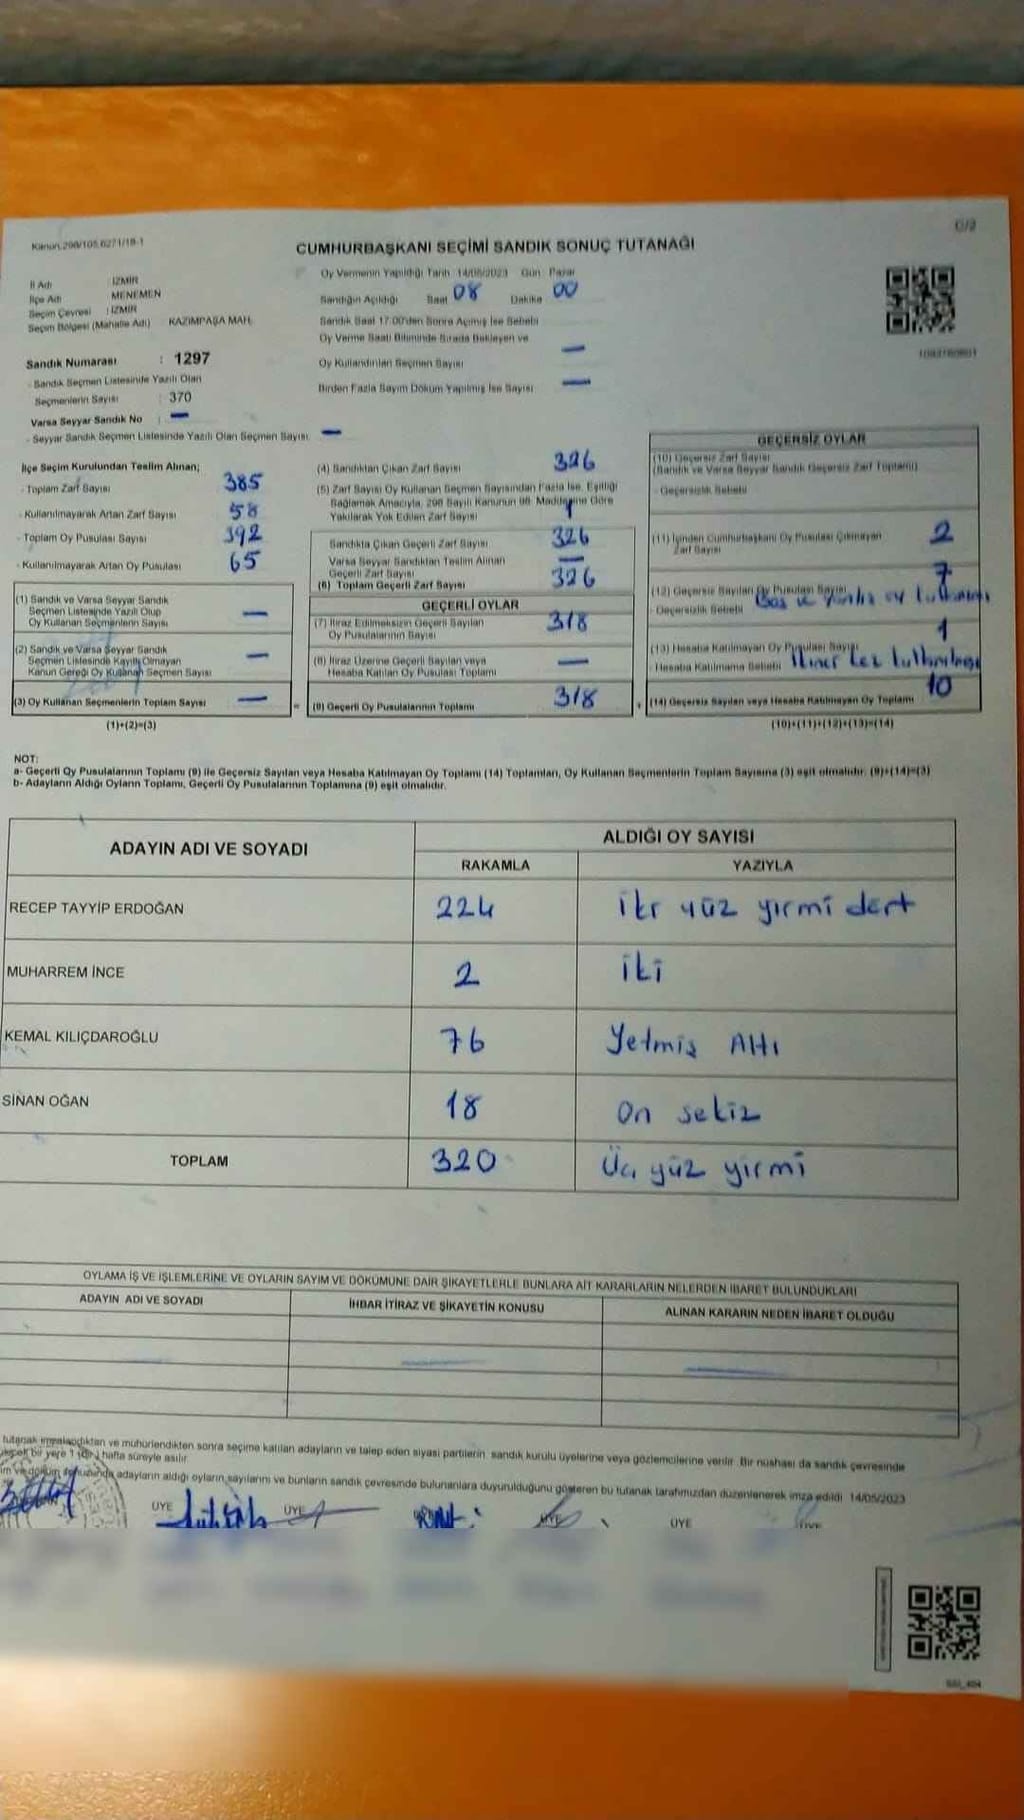 Kanun.298/105,6271/18-1
C/2
CUMHURBAŞKANI SEÇİMİ SANDIK SONUÇ TUTANAĞI
İl Adı : İZMİR
İlçe Adı : MENEMEN
Seçim Çevresi : İZMİR
Seçim Bölgesi (Mahalle Adı) : KAZIMPAŞA MAH.
Sandık Numarası : 1297
- Sandık Seçmen Listesinde Yazılı Olan
Seçmenlerin Sayısı : 370
Varsa Seyyar Sandık No : —
- Seyyar Sandık Seçmen Listesinde Yazılı Olan Seçmen Sayısı —
Oy Vermenin Yapıldığı Tarih 14/05/2023 Gün Pazar
Sandığın Açıldığı Saat 08 Dakika 00
Sandık Saat 17:00'den Sonra Açılmış İse Sebebi
Oy Verme Saati Bitiminde Sırada Bekleyen ve
Oy Kullandırılan Seçmen Sayısı —
Birden Fazla Sayım Döküm Yapılmış İse Sayısı —
İlçe Seçim Kurulundan Teslim Alınan;
- Toplam Zarf Sayısı 385
- Kullanılmayarak Artan Zarf Sayısı 58
- Toplam Oy Pusulası Sayısı 392
- Kullanılmayarak Artan Oy Pusulası 65
(1) Sandık ve Varsa Seyyar Sandık
Seçmen Listesinde Yazılı Olup
Oy Kullanan Seçmenlerin Sayısı —
(2) Sandık ve Varsa Seyyar Sandık
Seçmen Listesinde Kayıtlı Olmayan
Kanun Gereği Oy Kullanan Seçmen Sayısı —
(3) Oy Kullanan Seçmenlerin Toplam Sayısı —
(1)+(2)=(3)
(4) Sandıktan Çıkan Zarf Sayısı 326
(5) Zarf Sayısı Oy Kullanan Seçmen Sayısından Fazla İse, Eşitliği
Sağlamak Amacıyla, 298 Sayılı Kanunun 98. Maddesine Göre
Yakılarak Yok Edilen Zarf Sayısı
Sandıkta Çıkan Geçerli Zarf Sayısı 326
Varsa Seyyar Sandıktan Teslim Alınan
Geçerli Zarf Sayısı —
(6) Toplam Geçerli Zarf Sayısı 326
GEÇERLİ OYLAR
(7) İtiraz Edilmeksizin Geçerli Sayılan
Oy Pusulalarının Sayısı 318
(8) İtiraz Üzerine Geçerli Sayılan veya
Hesaba Katılan Oy Pusulası Toplamı —
(9) Geçerli Oy Pusulalarının Toplamı 318
GEÇERSİZ OYLAR
(10) Geçersiz Zarf Sayısı
(Sandık ve Varsa Seyyar Sandık Geçersiz Zarf Toplamı)
- Geçersizlik Sebebi
(11) İçinden Cumhurbaşkanı Oy Pusulası Çıkmayan
Zarf Sayısı 2
(12) Geçersiz Sayılan Oy Pusulası Sayısı 7
- Geçersizlik Sebebi Boş ve Yanlış oy kullanımı
(13) Hesaba Katılmayan Oy Pusulası Sayısı 1
- Hesaba Katılmama Sebebi İkinci kez kullanılması
(14) Geçersiz Sayılan veya Hesaba Katılmayan Oy Toplamı 10
(10)+(11)+(12)+(13)=(14)
NOT:
a- Geçerli Oy Pusulalarının Toplamı (9) ile Geçersiz Sayılan veya Hesaba Katılmayan Oy Toplamı (14) Toplamları, Oy Kullanan Seçmenlerin Toplam Sayısına (3) eşit olmalıdır. (9)+(14)=(3)
b- Adayların Aldığı Oyların Toplamı, Geçerli Oy Pusulalarının Toplamına (9) eşit olmalıdır.
ADAYIN ADI VE SOYADI
ALDIĞI OY SAYISI
RAKAMLA YAZIYLA
RECEP TAYYİP ERDOĞAN 224 iki yüz yirmi dört
MUHARREM İNCE 2 iki
KEMAL KILIÇDAROĞLU 76 Yetmiş Altı
SİNAN OĞAN 18 on sekiz
TOPLAM 320 Üç yüz yirmi
OYLAMA İŞ VE İŞLEMLERİNE VE OYLARIN SAYIM VE DÖKÜMÜNE DAİR ŞİKAYETLERLE BUNLARA AİT KARARLARIN NELERDEN İBARET BULUNDUKLARI
ADAYIN ADI VE SOYADI
İHBAR İTİRAZ VE ŞİKAYETİN KONUSU
ALINAN KARARIN NEDEN İBARET OLDUĞU
tutanak imzalandıktan ve mühürlendikten sonra seçime katılan adayların ve talep eden siyasi partilerin, sandık kurulu üyelerine veya gözlemcilerine verilir. Bir nüshası da sandık çevresinde
bir yere 1 (bir) hafta süreyle asılır.
ım ve döküm sonucunda adayların aldığı oyların sayılarını ve bunların sandık çevresinde bulunanlara duyurulduğunu gösteren bu tutanak tarafımızdan düzenlenerek imza edildi 14/05/2023
ÜYE ÜYE ÜYE ÜYE ÜYE